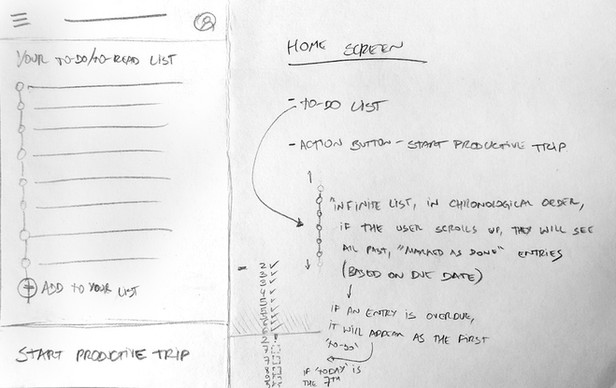 YOUR TO-DO/TO-READ LIST
ADD TO YOUR LIST
START PRODUCTIVE TRIP
HOME SCREEN
- TO-DO LIST
- ACTION BUTTON - START PRODUCTIVE TRIP
"INFINITE LIST, IN CHRONOLOGICAL ORDER,
IF THE USER SCROLLS UP, THEY WILL SEE
ALL PAST, "MARKED AS DONE" ENTRIES
(BASED ON DUE DATE)
IF AN ENTRY IS OVERDUE,
IT WILL APPEAR AS THE FIRST
"TO-DO"
IF "TODAY" IS
THE 7TH
2 ✓
3 ✓
3 ✓
4 ✓
5 ✓
5 ✓
5 ✓
7
7
8